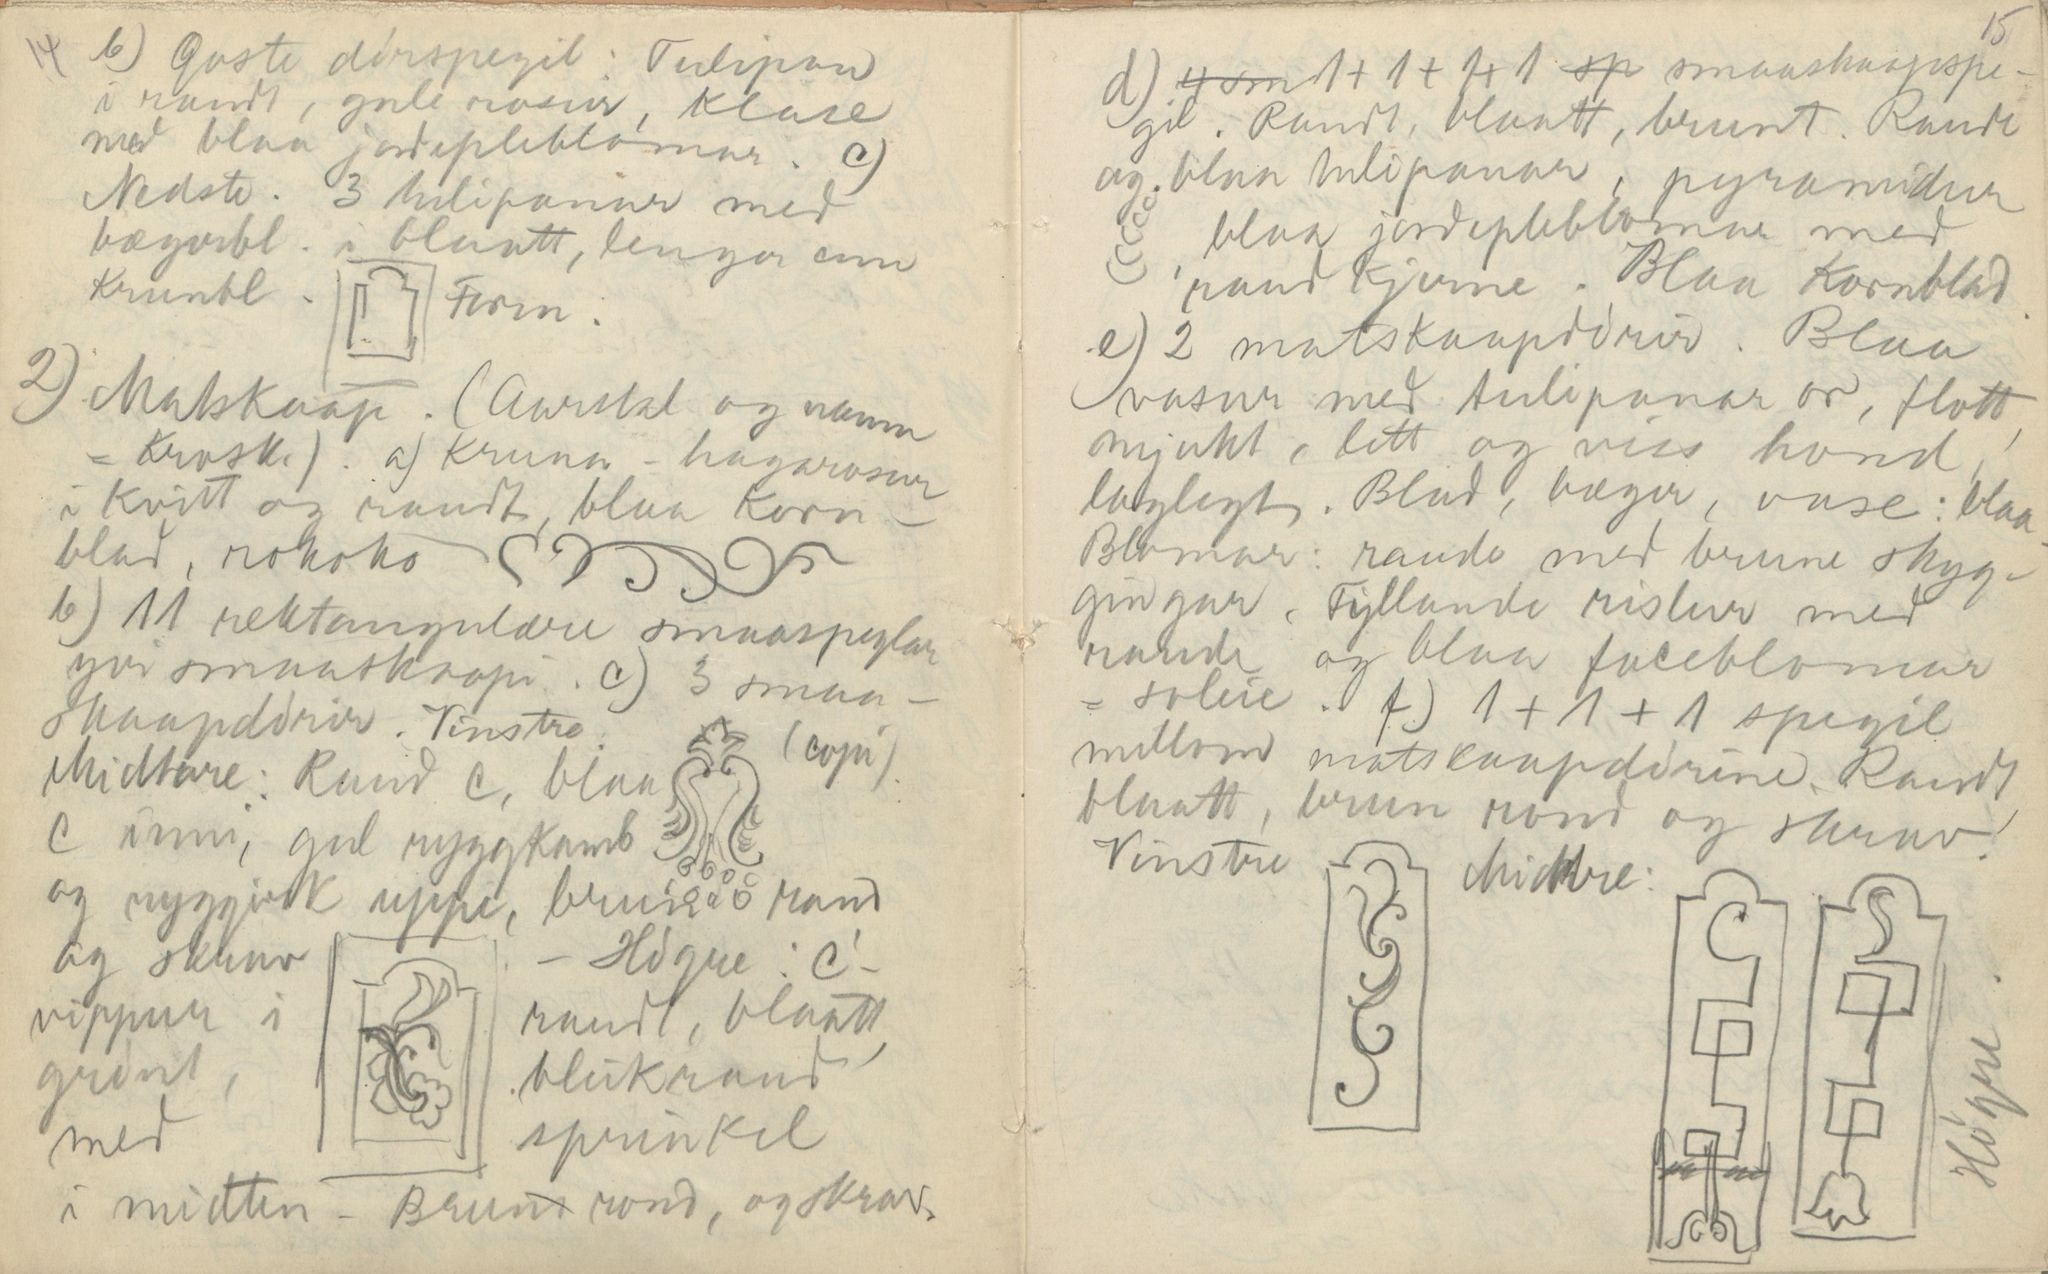 14
b) Øoste dørspegil: Tulipan
i raudt, gule rosur, klase
med blaa jordepleblomar. c)
Nedste. 3 tulipanar med
bægerbl. i blaatt, lenger enn
krunbl. Form.
2) Matskaap. (Aarstal og namn
= krosk.). a) Kruna - hagarosur
i kvitt og raudt, blaa korn-
blad, rokoko
b) 11 rektangulære smaaspeglar
yvi smaaskaapi. c) 3 smaa-
skaapdørir. Vinstre:
(copi).
Midtare: Raud C, blaa
C inni, gul ryggkamb
og ryggjork uppe, brun rand
og skrav
vippur i
grønt,
med
- Høgre: C
raudt, blaatt,
bleikraud
sprinkel
i midten - Brun rond, og skrav.
15
d) 4 sm 1+1+1+1 sp smaaskaapspe-
gil. Raudt, blaatt, brunt. Raude
og blaa tulipanar, pyramidur
, blaa jordepleblomar med
raud kjerne. Blaa kornblad.
e) 2 matskaapdørir. Blaa
vasur med tulipanar or, flott,
mjukt, lett og viss hond,
laglegt. Blad, bæger, vase: blaa
Blomar: raude med brune skyg-
gingar. Fyllande ristur med
raude og blaa faceblomar
= soleie. f) 1+1+1 spegil
millom matskaapdørine. Raudt
blaatt, brun rond og skrav!
Vinstre
Midtre:
Høgre.